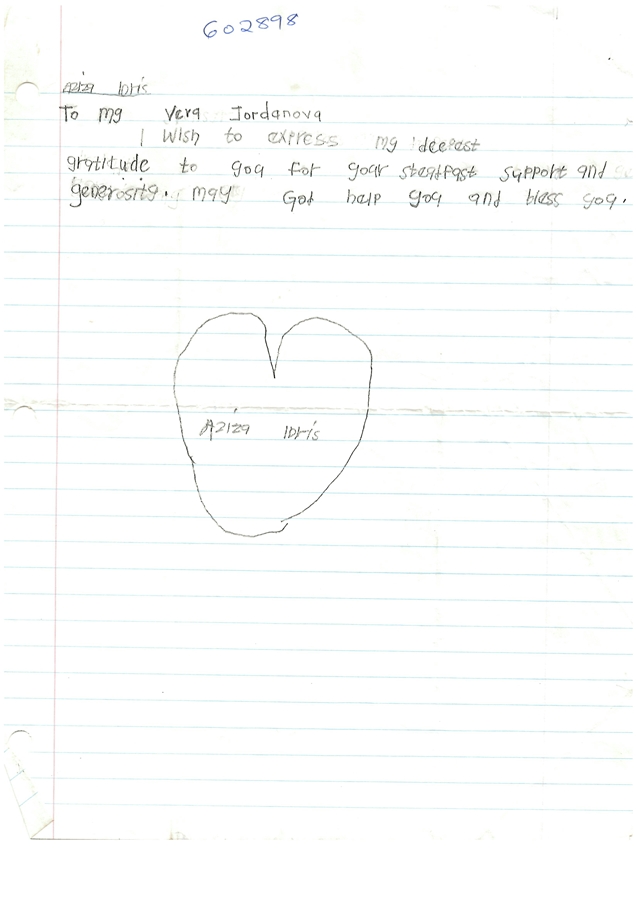 602898
Aziza Idris
To my Vera Jordanova
I Wish to express my deepest
gratitude to you for your steadfast support and
generosity. may God help you and bless you.
Aziza IDris